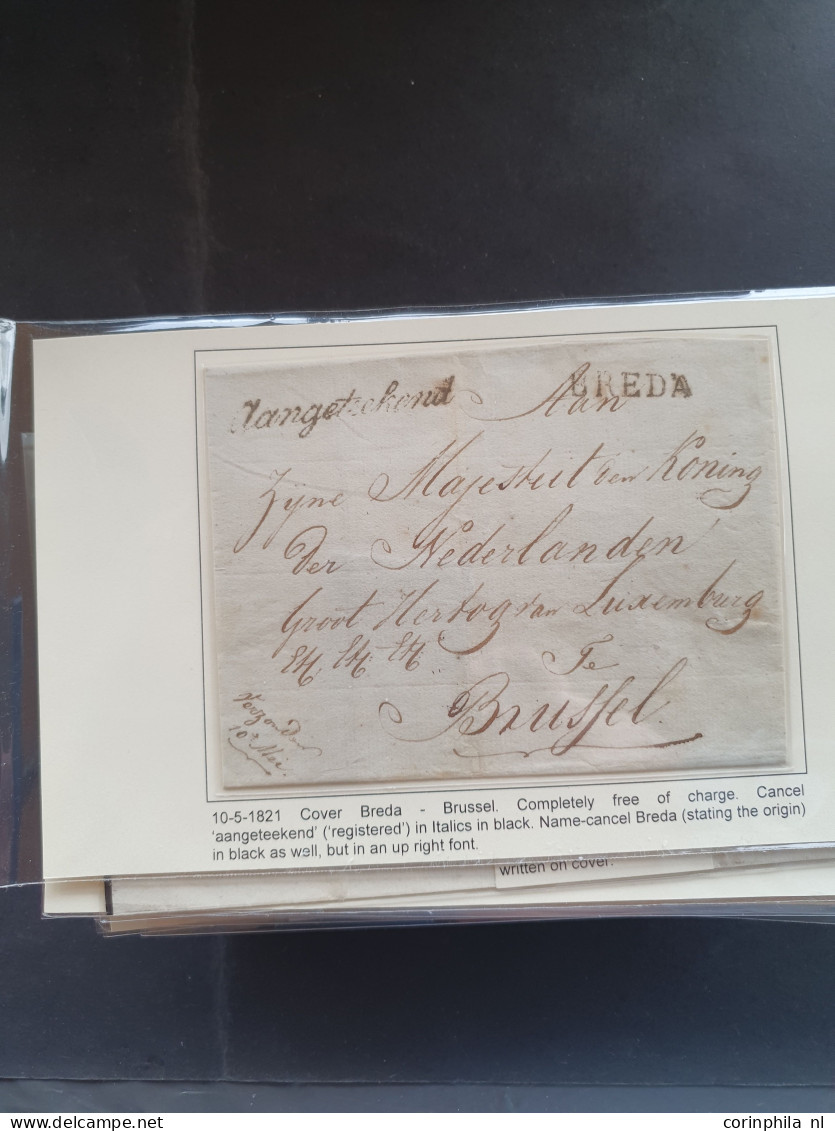 Aangeteekend BREDA
Aan
Zijne Majesteit den Koning
der Nederlanden
Groot Hertog van Luxemburg
Etc Etc Etc Te
Brussel.
Verzonden
10 Mei.
10-5-1821 Cover Breda - Brussel. Completely free of charge. Cancel
'aangeteekend' ('registered') in Italics in black. Name-cancel Breda (stating the origin)
in black as well, but in an up right font.
written on cover.
corinphila nl